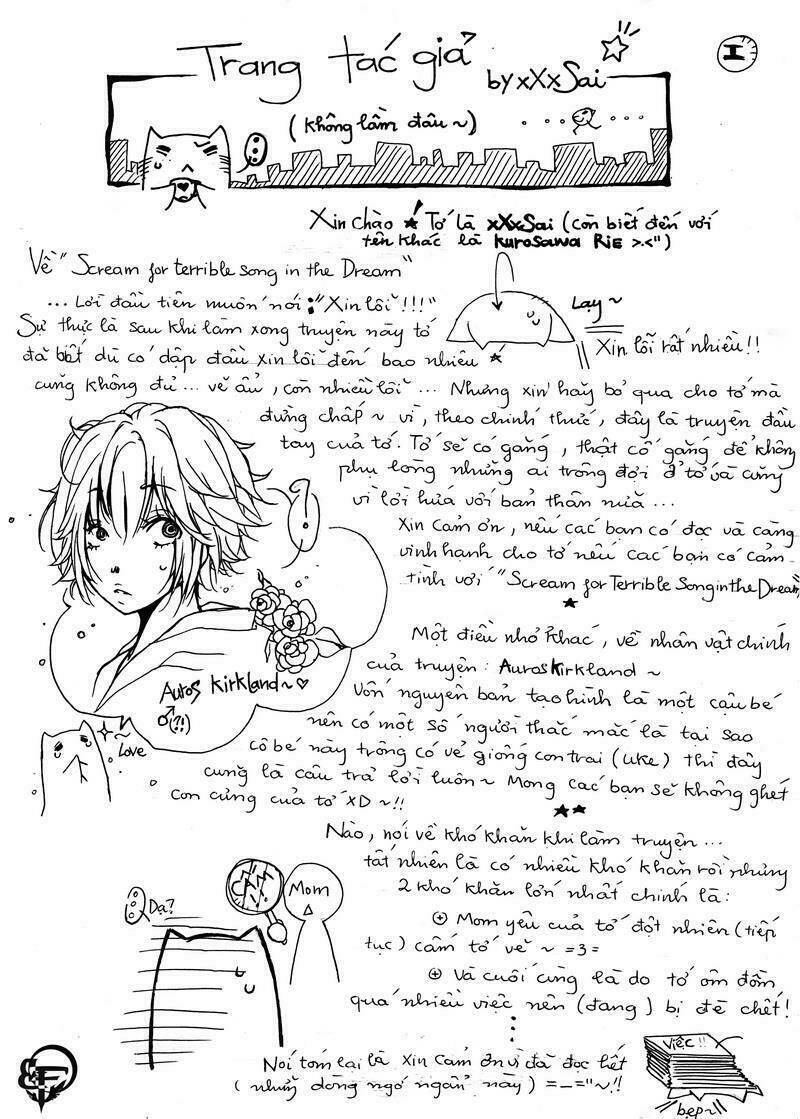 I
Trang tác giả
by xXxSai
(Không lầm đâu ~)
Xin chào ★! Tớ là xXxSai (còn biết đến với
tên khác là Kurosawa Rie >.<")
Về "Scream for terrible song in the Dream"
... Lời đầu tiên muốn nói : "Xin lỗi !!!"
Lạy ~
Xin lỗi rất nhiều!!
Sự thực là sau khi làm xong truyện này tớ
đã biết dù có dập đầu xin lỗi đến bao nhiêu ★
cũng không đủ ... vẽ ẩu, còn nhiều lỗi ... Nhưng xin hãy bỏ qua cho tớ mà
đừng chấp ~ vì, theo chính thức, đây là truyện đầu
tay của tớ. Tớ sẽ cố gắng, thật cố gắng để không
phụ lòng những ai trông đợi ở tớ và cũng
vì lời hứa với bản thân nữa ...
Xin cảm ơn, nếu các bạn có đọc và càng
vinh hạnh cho tớ nếu các bạn có cảm
tình với "Scream for Terrible Song in the Dream"
★
Một điều nhỏ khác, về nhân vật chính
của truyện : Auros Kirkland ~
Auros Kirkland ~ ♡
♂ (?!)
Vốn nguyên bản tạo hình là một cậu bé
nên có một số người thắc mắc là tại sao
cô bé này trông có vẻ giống con trai (uke) thì đây
cũng là câu trả lời luôn ~ Mong các bạn sẽ không ghét
con cưng của tớ XD ~!!
~ Love
★★
Nào, nói về khó khăn khi làm truyện ...
tất nhiên là có nhiều khó khăn rồi nhưng
2 khó khăn lớn nhất chính là:
⊕ Mom yêu của tớ đột nhiên (tiếp
tục) cấm tớ vẽ ~ =3=
⊕ Và cuối cùng là do tớ ôm đồm
quá nhiều việc nên (đang) bị đè chết!
Dạ?
CẤM!!
Mom
Nói tóm lại là xin cảm ơn vì đã đọc hết
(những dòng ngớ ngẩn này) =_="~!!
Việc!!
bẹp~!!